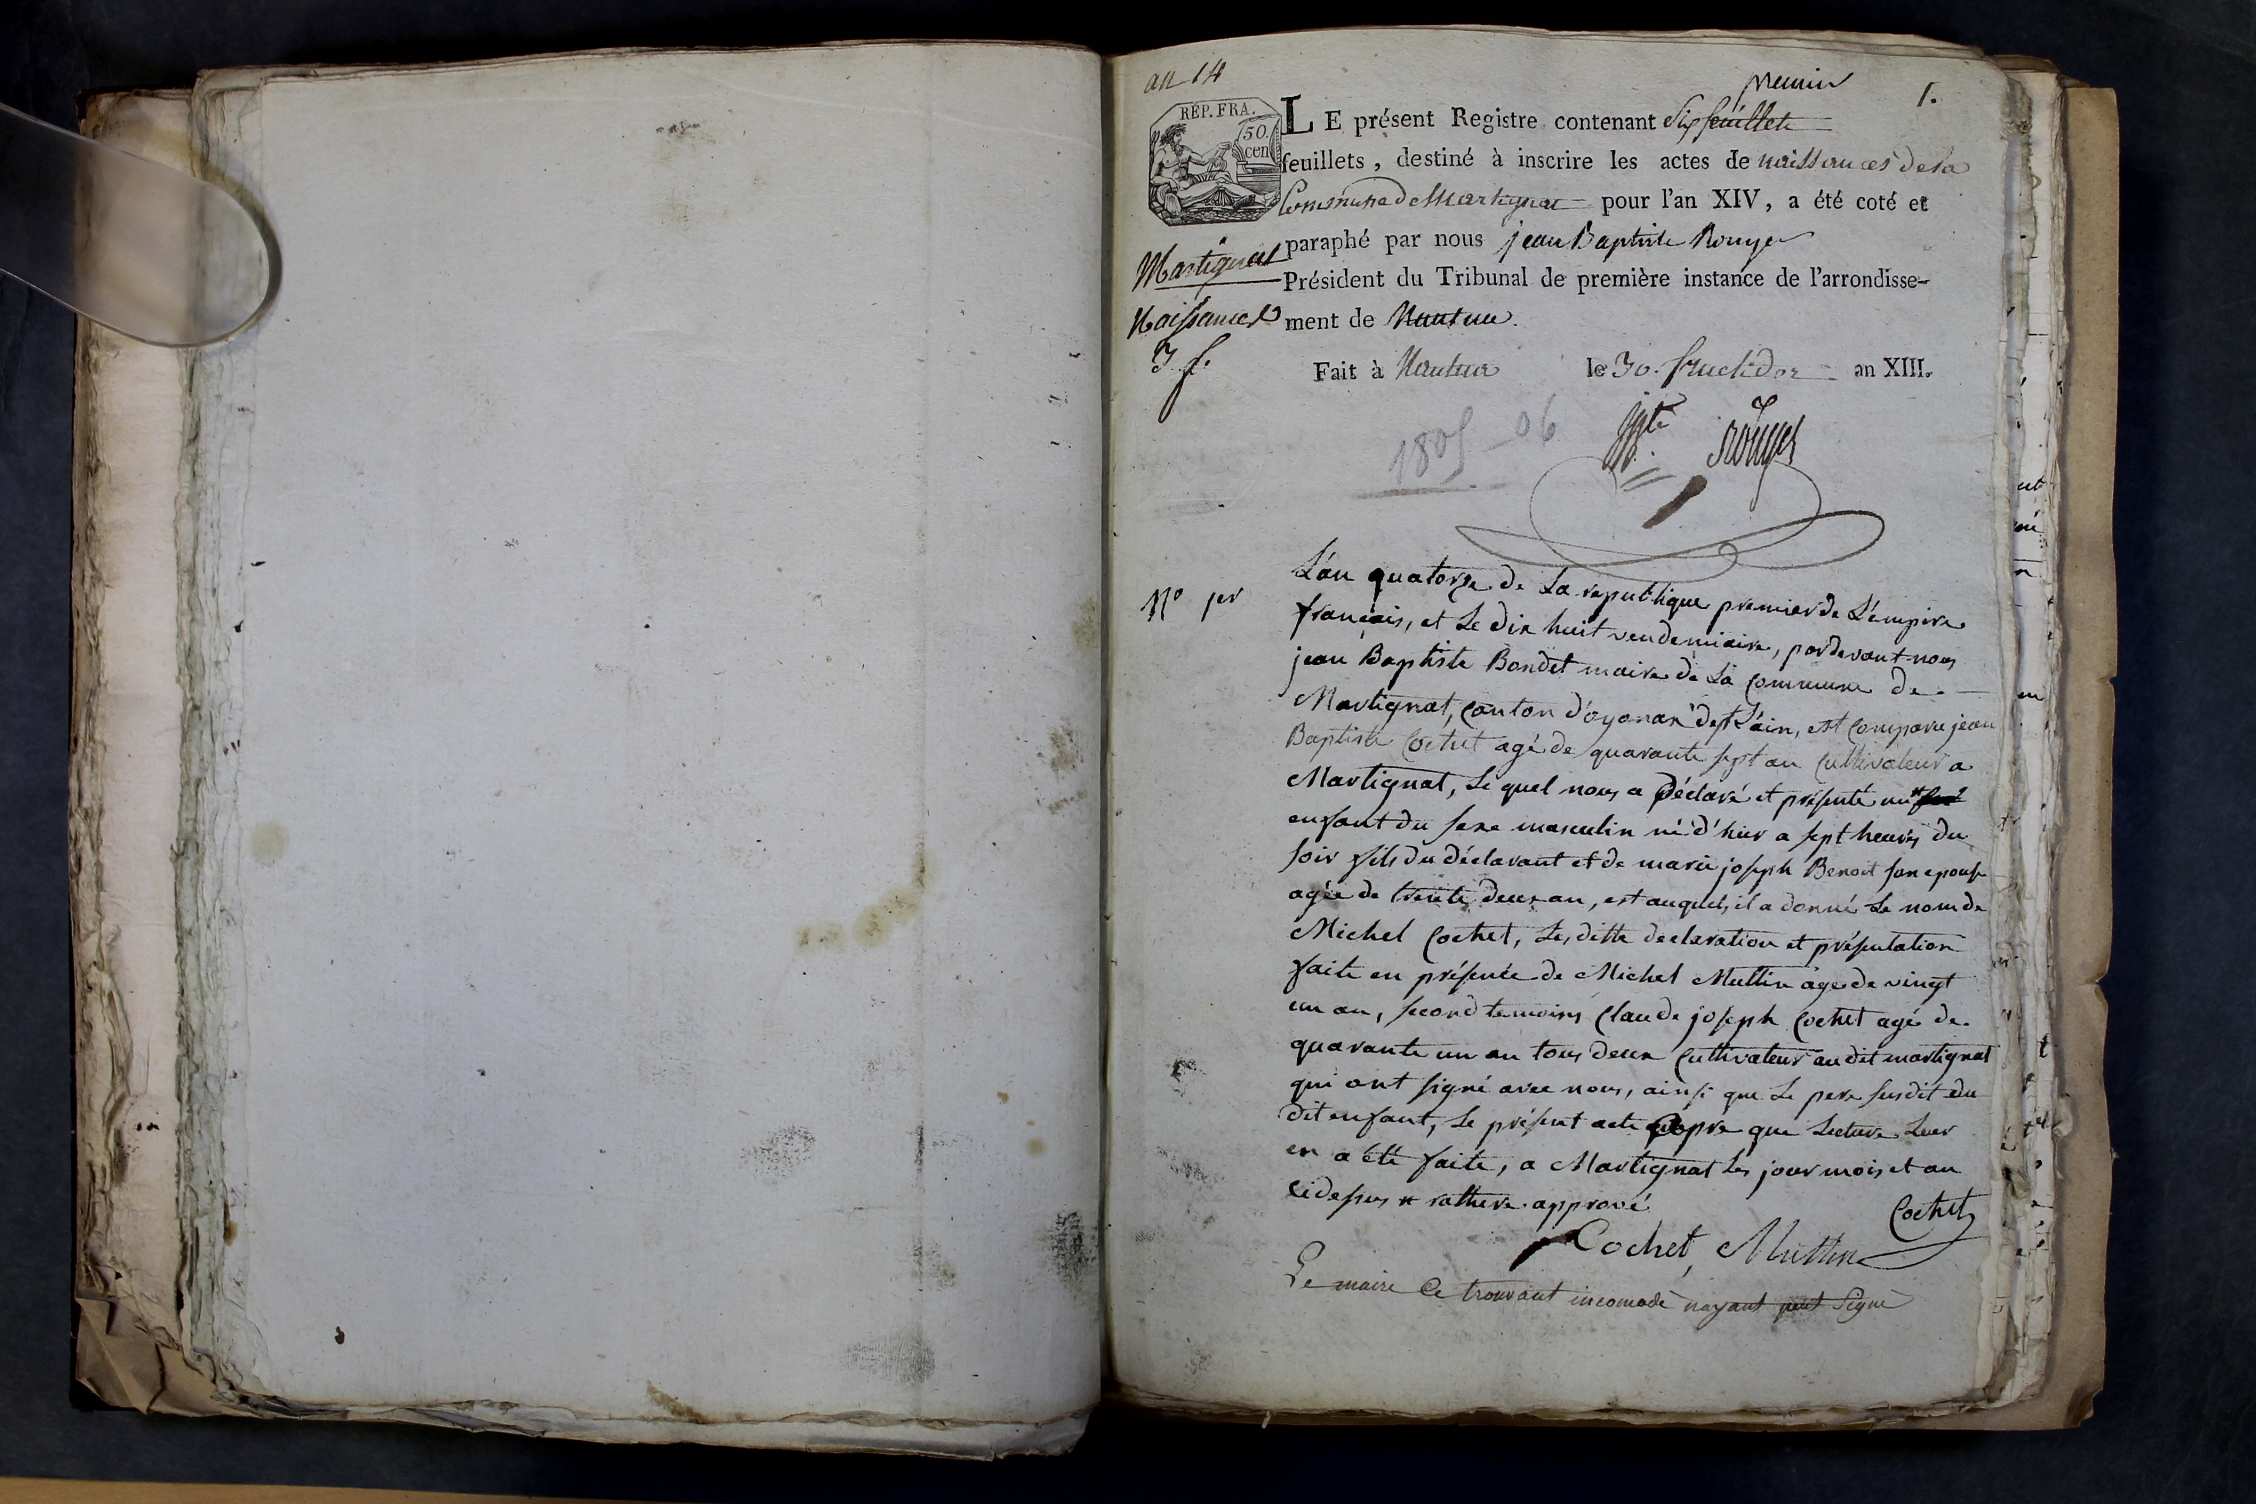 an 14
premier
1.
REP. FRA.
50.
cen
LE présent Registre contenant Six feuillets
feuillets, destiné à inscrire les actes de naissances de la
Commune de Martignat pour l'an XIV, a été coté et
paraphé par nous jean Baptiste Rouyer
Président du Tribunal de première instance de l'arrondisse-
ment de Nantua.
Martignat
Naissances
3 f.
Fait à Nantua le 30. fructidor an XIII.
1805-06
Jn Bte Rouyer
No 1er
L'an quatorze de La republique premier de L'empire
français, et Le dix huit vendemiaire, pardevant nous
jean Baptiste Bondet maire de La Commune de
Martignat, Canton d'oyonax dept L'ain, est Comparu jean
Baptiste Cochet agé de quarante sept an Cultivateur a
Martignat, Le quel nous a Déclaré et présenté un
enfant du sexe masculin né d'hier a sept heures du
soir fils du déclarant et de marie joseph Benoit son epouse
agée de trente deux an, est auquel, il a donné Le nom de
Michel Cochet, Les ditte declaration et présentation
faite en présence de Michel Muttin agé de vingt
un an, second temoins Claude joseph Cochet agé de
quarante un an tous deux Cultivateur audit martignat
qui ont signé avec nous, ainsi que Le pere susdit du
dit enfant, Le présent acte apre que Lecture Leur
en a été faite, a Martignat Les jour mois et an
cidessus * rathure apprové
Cochet
Cochet, Muttin
Le maire Ce trouvant incomodé nayant peut Signé